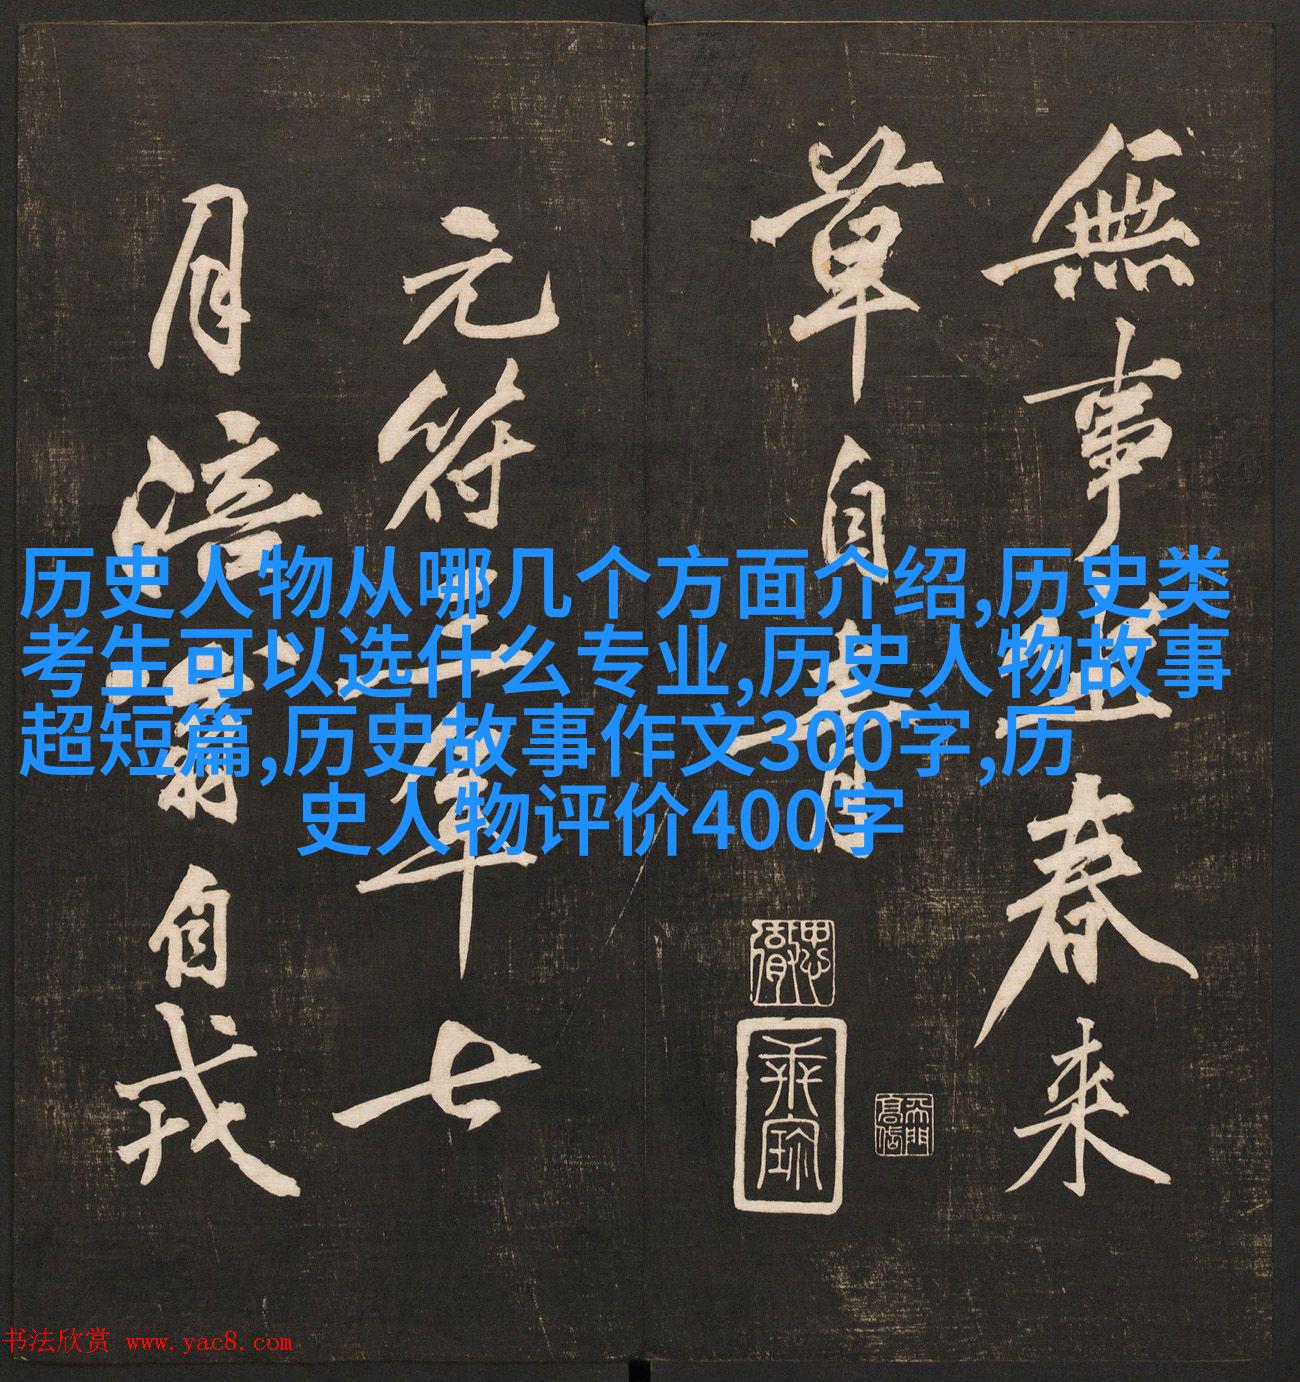 無事坐春来
草自青
元符三年七
月涪翁自戎
历史人物从哪几个方面介绍,历史类
考生可以选什么专业,历史人物故事
超短篇,历史故事作文300字,历
史人物评价400字
书法欣赏 www.yac8.com